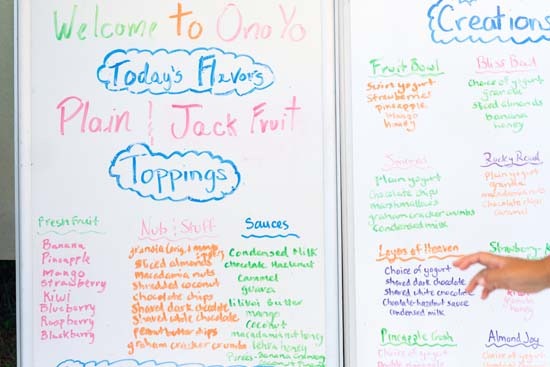 Welcome to Ono Yo
Today's Flavors
Plain | Jack Fruit
Toppings
Fresh Fruit
Banana
Pineapple
Mango
Strawberry
Kiwi
Blueberry
Raspberry
Blackberry
Nuts & Stuff
granola (orig, & mango
sliced almonds
macadamia nuts
shredded coconut
chocolate chips
Shared dark chocolate
Shared white chocolate
peanut butter chips
graham cracker crumbs
Sauces
Condensed Milk
chocolate Hazelnut
Caramel
guava
lilikoi butter
mango
Coconut
macadamia nut honey
lehua honey
Purees - Banana
Creations
Fruit Bowl
Swirl yogurt
Strawberries
pineapple
Mango
honey
Bliss Bowl
Choice of yogurt
granola
Sliced almonds
banana
honey
Plain yogurt
chocolate chips
marshmallows
graham cracker crumbs
condensed milk
Rocky Road
Plain yogurt
granola
macadamia nuts
Chocolate chips
Caramel
Layers of Heaven
Choice of yogurt
shared dark chocolate
shared white chocolate
Chocolate-hazelnut sauce
condensed milk
Strawberry
Pineapple Crush
Choice of yogurt
Almond Joy
Choice of yogurt